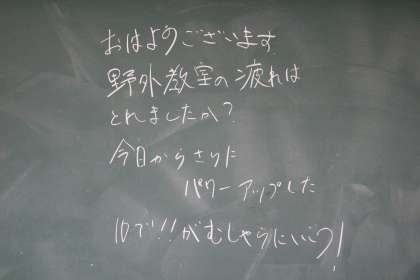 おはようございます
野外教室の疲れは
とれましたか?
今日からさらに
パワーアップした
がむしゃらにいこう!